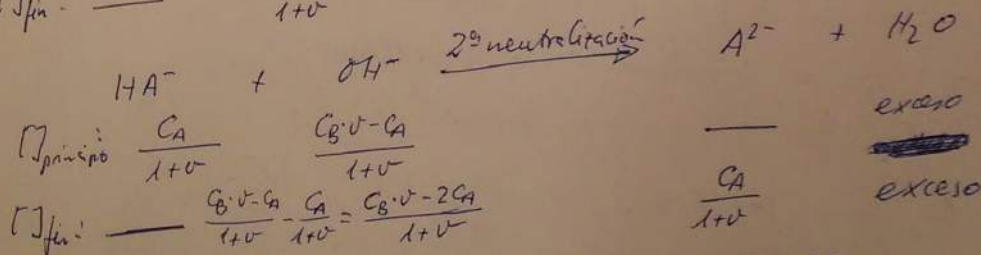 [ ]fin. — 1+v
HA⁻ + OH⁻ 2ª neutralización A²⁻ + H₂O
[ ]principio C_A/(1+v) (C_B·v-C_A)/(1+v) — exceso
[ ]fin: — (C_B·v-C_A)/(1+v) - C_A/(1+v) = (C_B·v-2C_A)/(1+v) C_A/(1+v) exceso